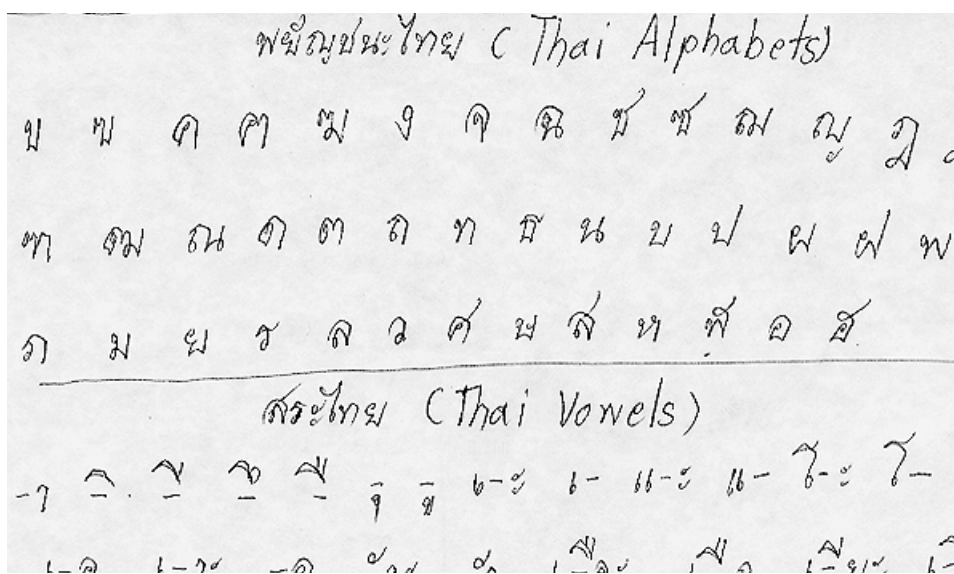 พยัญชนะไทย (Thai Alphabets)
ข ฃ ค ฅ ฆ ง จ ฉ ช ซ ฌ ญ ฎ
ฑ ฒ ณ ด ต ถ ท ธ น บ ป ผ ฝ พ
ภ ม ย ร ล ว ศ ษ ส ห ฬ อ ฮ
สระไทย (Thai Vowels)
-า -ิ -ี -ึ -ื -ุ -ู เ-ะ เ- แ-ะ แ- โ-ะ โ-